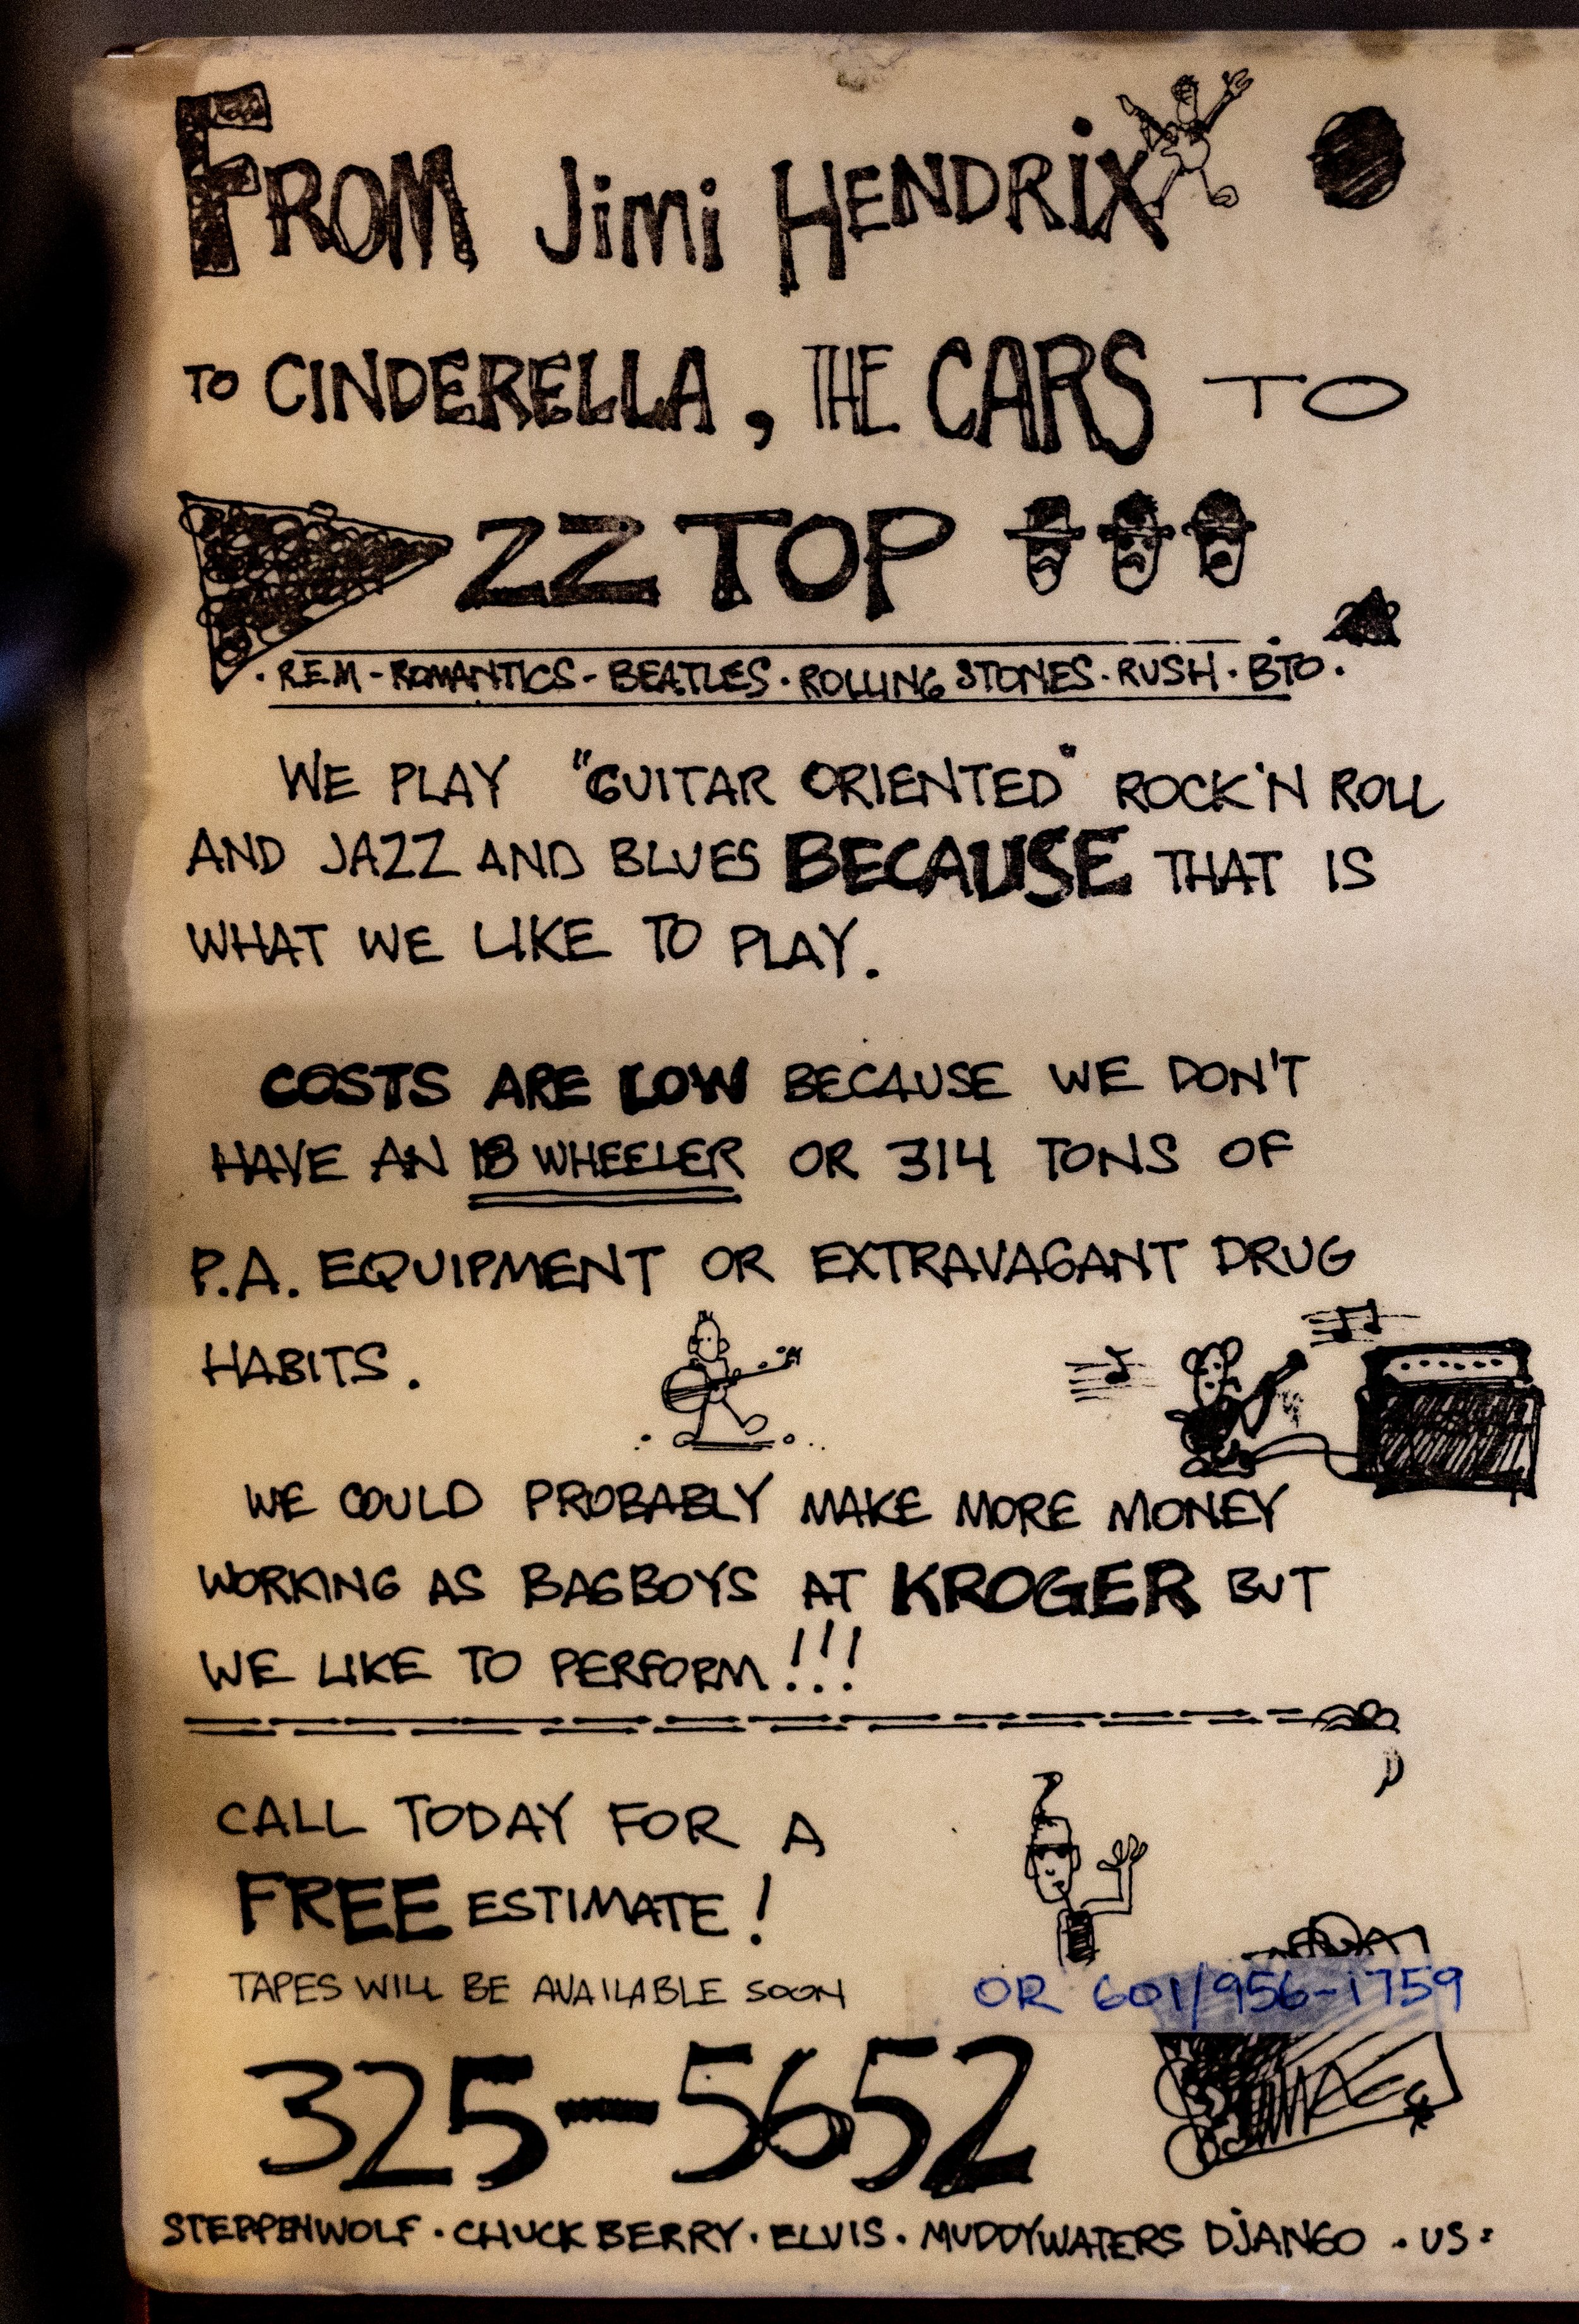 FROM Jimi HENDRiX
TO CINDERELLA, THE CARS TO
ZZ TOP
· R.E.M - ROMANTICS - BEATLES · ROLLING STONES · RUSH · BTO ·
WE PLAY "GUITAR ORIENTED" ROCK'N ROLL
AND JAZZ AND BLUES BECAUSE THAT IS
WHAT WE LIKE TO PLAY.
COSTS ARE LOW BECAUSE WE DON'T
HAVE AN 18 WHEELER OR 314 TONS OF
P.A. EQUIPMENT OR EXTRAVAGANT DRUG
HABITS.
WE COULD PROBABLY MAKE MORE MONEY
WORKING AS BAGBOYS AT KROGER BUT
WE LIKE TO PERFORM!!!
CALL TODAY FOR A
FREE ESTIMATE!
TAPES WILL BE AVAILABLE SOON
OR 601/956-1759
325-5652
STEPPENWOLF · CHUCK BERRY · ELVIS · MUDDYWATERS DJANGO · US :